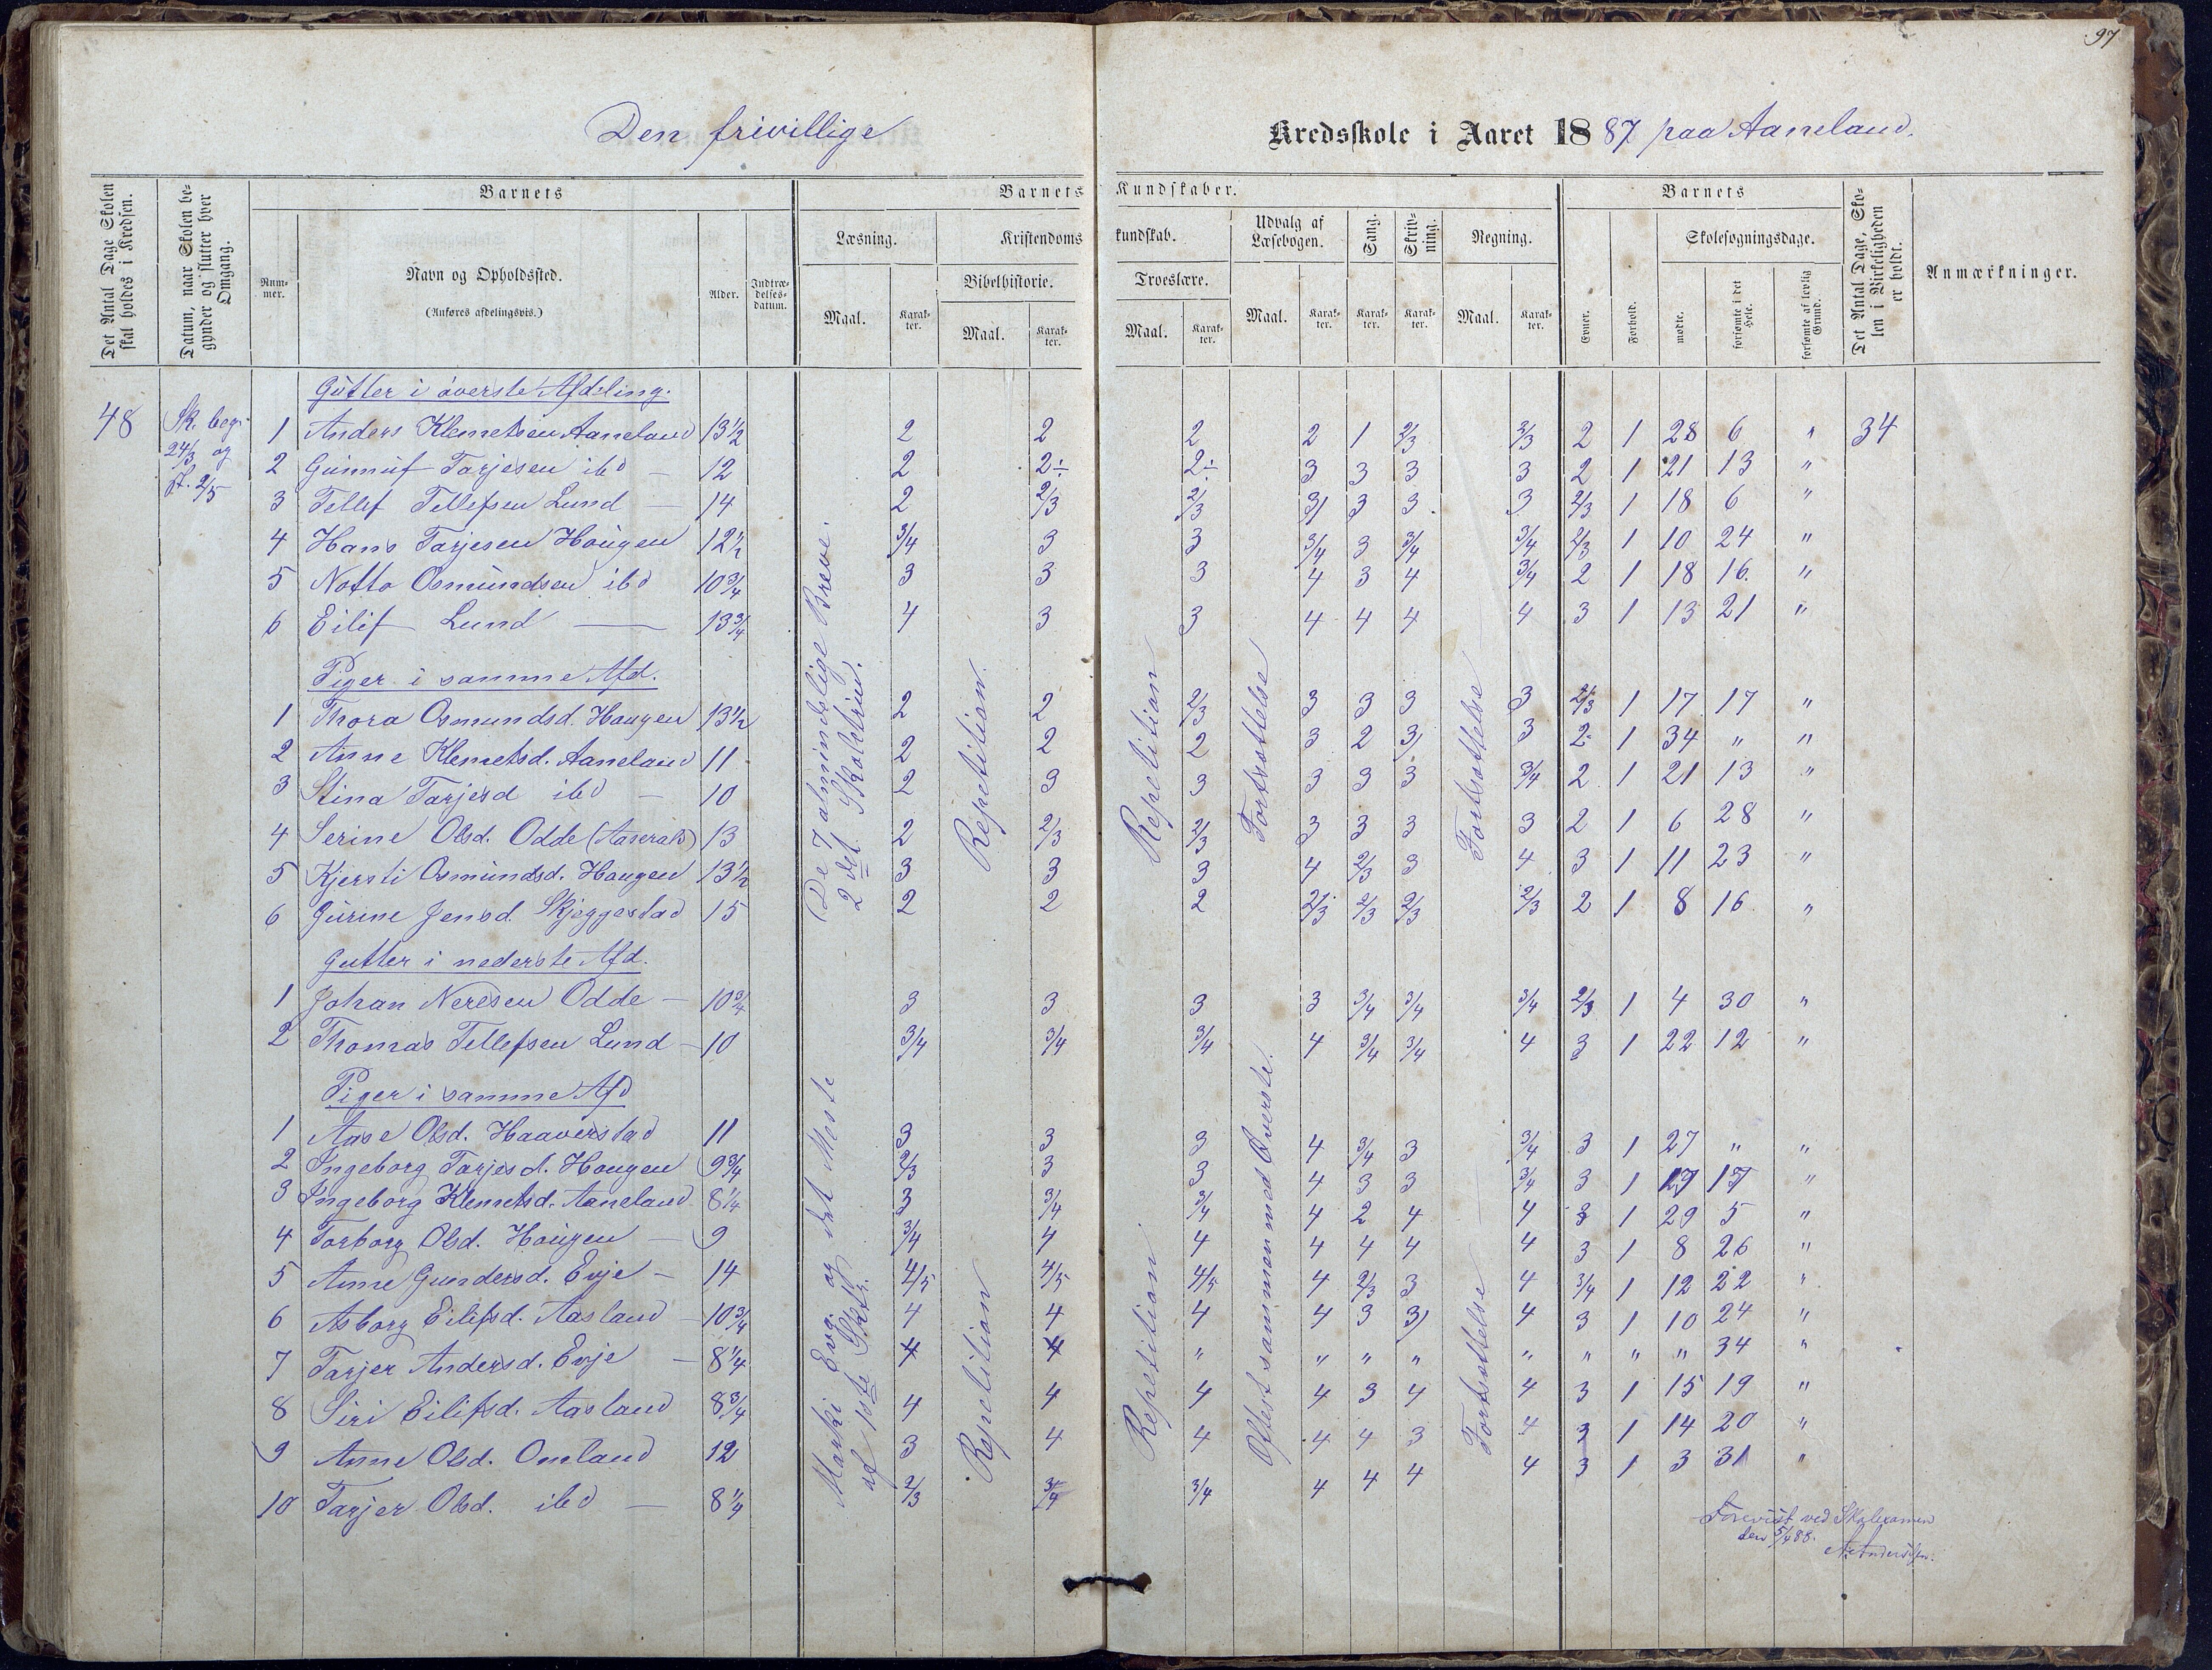 97
Den frivillige Kredsskole i Aaret 1887 paa Aaneland.
Det Antal Dage Skolen skal holdes i Kredsen.
Datum, naar Skolen begynder og slutter hver Omgang.
Barnets
Nummer.
Navn og Opholdssted.
(Anføres afdelingsvis.)
Alder.
Indtrædelsesdatum.
Barnets Kundskaber.
Læsning.
Maal.
Karakter.
Kristendomskundskab.
Bibelhistorie.
Maal.
Karakter.
Troeslære.
Maal.
Karakter.
Udvalg af Læsebogen.
Maal.
Karakter.
Sang.
Karakter.
Skrivning.
Karakter.
Regning.
Maal.
Karakter.
Barnets
Evner.
Forhold.
Skolesøgningsdage.
mødte.
forsømte i det Hele.
forsømte af lovlig Grund.
Det Antal Dage, Skolen i Virkeligheden er holdt.
Anmærkninger.
48
Sk. beg. 24/3 og sl. 2/5
Gutter i øverste Afdeling.
1 Anders Klemetsen Aaneland 13½ 2 2 2 2 1 2/3 2/3 2 1 28 6 " 34
2 Gunnuf Tarjesen ibd — 12 2 2÷ 2÷ 3 3 3 3 2 1 21 13 "
3 Tellef Tellefsen Lund — 14 2 2/3 2/3 3 3 3 3 2/3 1 18 6 "
4 Hans Tarjesen Hougen 12½ 3/4 3 3 3/4 3 3/4 3/4 2/3 1 10 24 "
5 Notto Osmundsen ibd 10¾ 3 3 3 4 3 4 3/4 2 1 18 16 "
6 Eilif Lund — 13¾ 4 3 3 4 4 4 4 3 1 13 21 "
Piger i samme Afd.
1 Thora Osmundsd. Haugen 13½ 2 2 2/3 3 3 3 3 2/3 1 17 17 "
2 Anne Klemetsd. Aaneland 11 2 2 2 3 2 3 3 2 1 34 " "
3 Stina Tarjesd ibd — 10 2 3 3 3 3 3 3/4 2 1 21 13 "
4 Serine Olsd. Odde (Aaseral) 13 2 2/3 2/3 3 3 3 3 2 1 6 28 "
5 Kjersti Osmundsd. Hougen 13½ 3 3 3 4 2/3 3 4 3 1 11 23 "
6 Gurine Jensd. Skjeggestad 15 2 2 2 2/3 2/3 2/3 2/3 2 1 8 16 "
De 7 almindelige Breve.
2det Skoletrin.
Repetition.
Repetition
Fortsættelse
Fortsættelse
Gutter i nederste Afd.
1 Johan Neresen Odde — 10¾ 3 3 3 3 3/4 3/4 3/4 2/3 1 4 30 "
2 Thomas Tellefsen Lund — 10 3/4 3/4 3/4 4 3/4 3/4 4 3 1 22 12 "
Piger i samme Afd
1 Aase Olsd. Haaverstad 11 3 3 3 4 3/4 3 3/4 3 1 27 " "
2 Ingeborg Tarjesd. Hougen 9¾ 2/3 3 3 4 3 3 3/4 3 1 17 17 "
3 Ingeborg Klemetsd. Aaneland 8¼ 3 3/4 3/4 4 2 4 4 3 1 29 5 "
4 Torborg Olsd. Hougen — 9 3/4 4 4 4 4 4 4 3 1 8 26 "
5 Anne Gundersd. Evje — 14 4/5 4/5 4/5 4 2/3 3 4 3/4 1 12 22 "
6 Asborg Eilifsd. Aasland — 10¾ 4 4 4 4 3 3 4 3 1 10 24 "
7 Tarjer Andersd. Evje — 8¼ 4 4 " " " " " " " " 34 "
8 Siri Eilifsd. Aasland 8¾ 4 4 4 4 3 4 4 3 1 15 19 "
9 Anne Olsd. Omland 12 3 4 4 4 4 3 4 3 1 14 20 "
10 Tarjer Olsd. ibd — 8¼ 2/3 3/4 3/4 4 4 4 4 3 1 3 31 "
Marki Evg. og det Meste
af 1ste Sktr.
Repetition
Repetition
Oftest sammen med Øverste.
Fortsættelse
Forevist ved Skoleexamen
den 5/4 88.